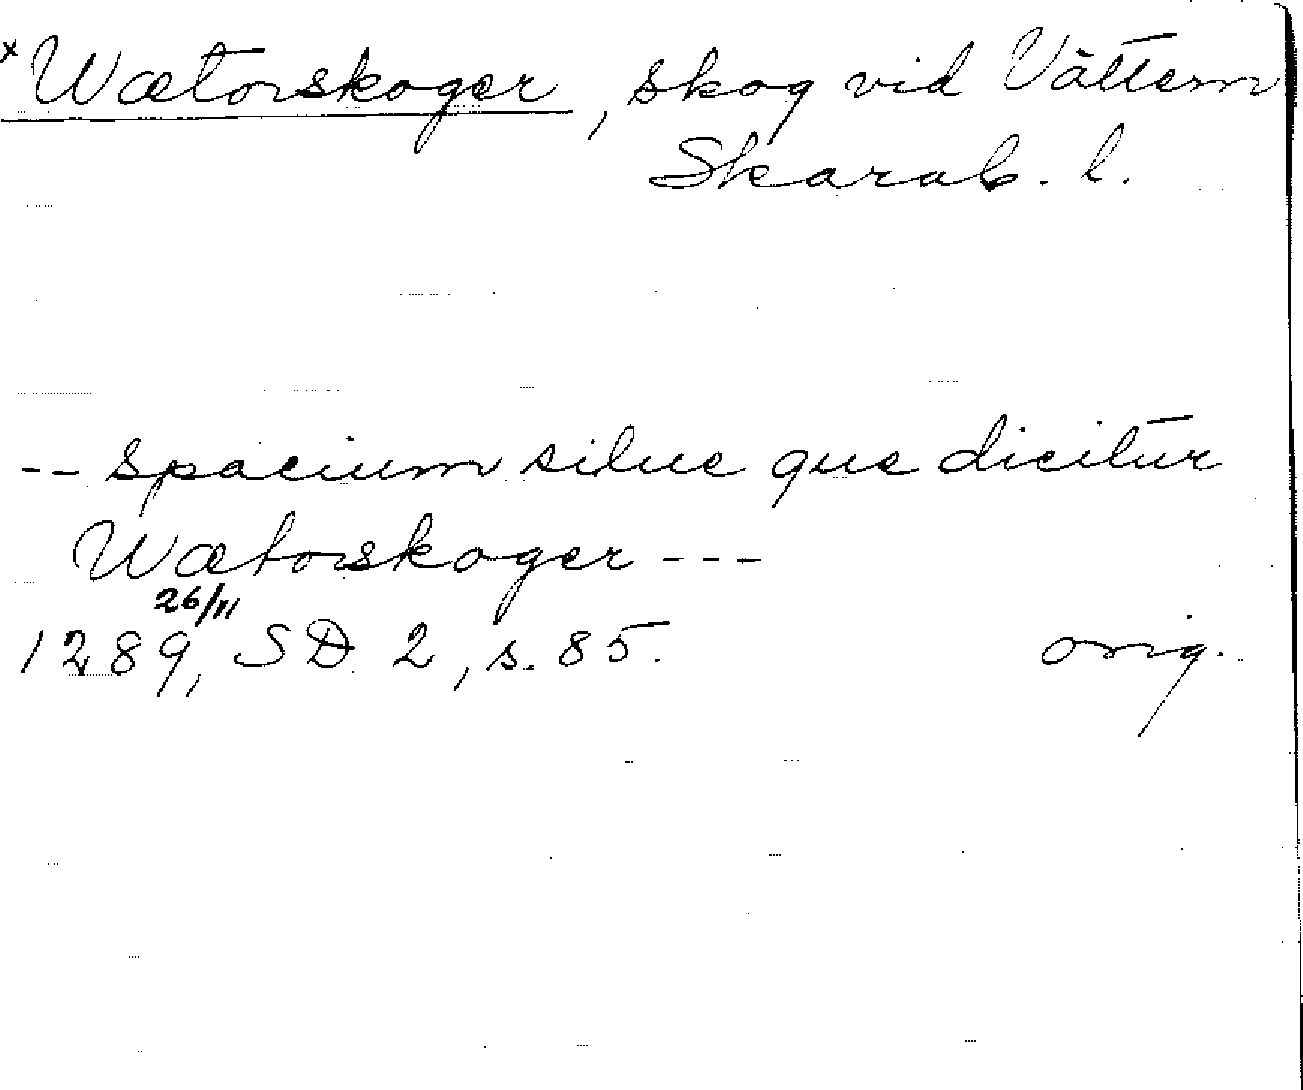 x Wætorskoger, skog vid Vättern
Skarab. l.
-- spacium silue que dicitur
Wætorskoger ---
26/11
1289, SD 2, s. 85.
orig.